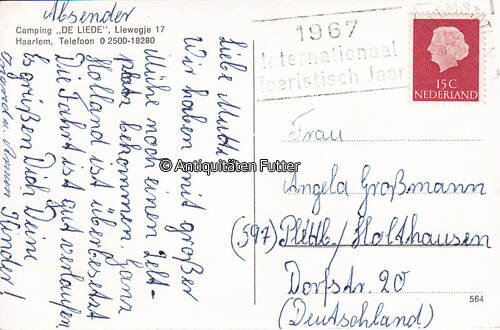 Absender
Camping „DE LIEDE", Liewegje 17
Haarlem, Telefoon 0 2500-18280
Liebe Mutti
Wir haben mit großer
Mühe noch einen Zelt-
platz bekommen. Ganz
Holland ist überbesetzt
Die Fahrt ist gut verlaufen
Es grüßen Dich Deine
Kinder!
1967
Internationaal
Toeristisch Jaar
15 C
NEDERLAND
© Antiquitäten Futter
Frau
Angela Großmann
(597) Plettb/Holthausen
Dorfstr. 20
(Deutschland)
564